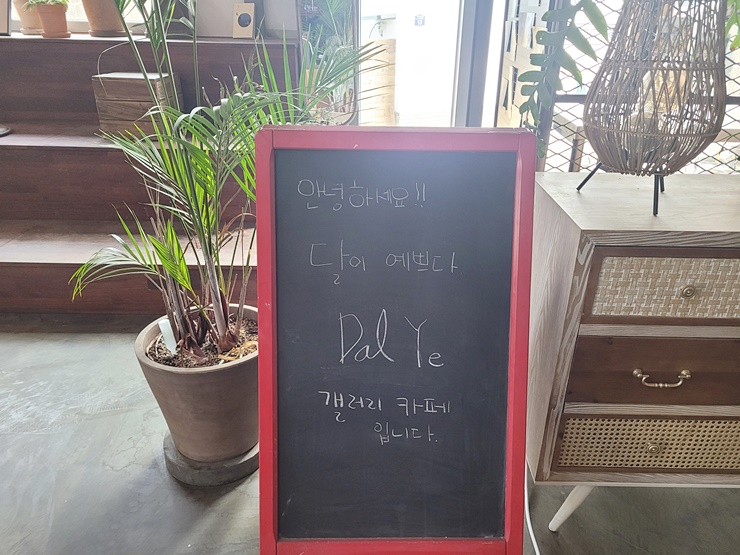 안녕하세요!!
달이 예쁘다
Dal Ye
갤러리 카페
입니다.